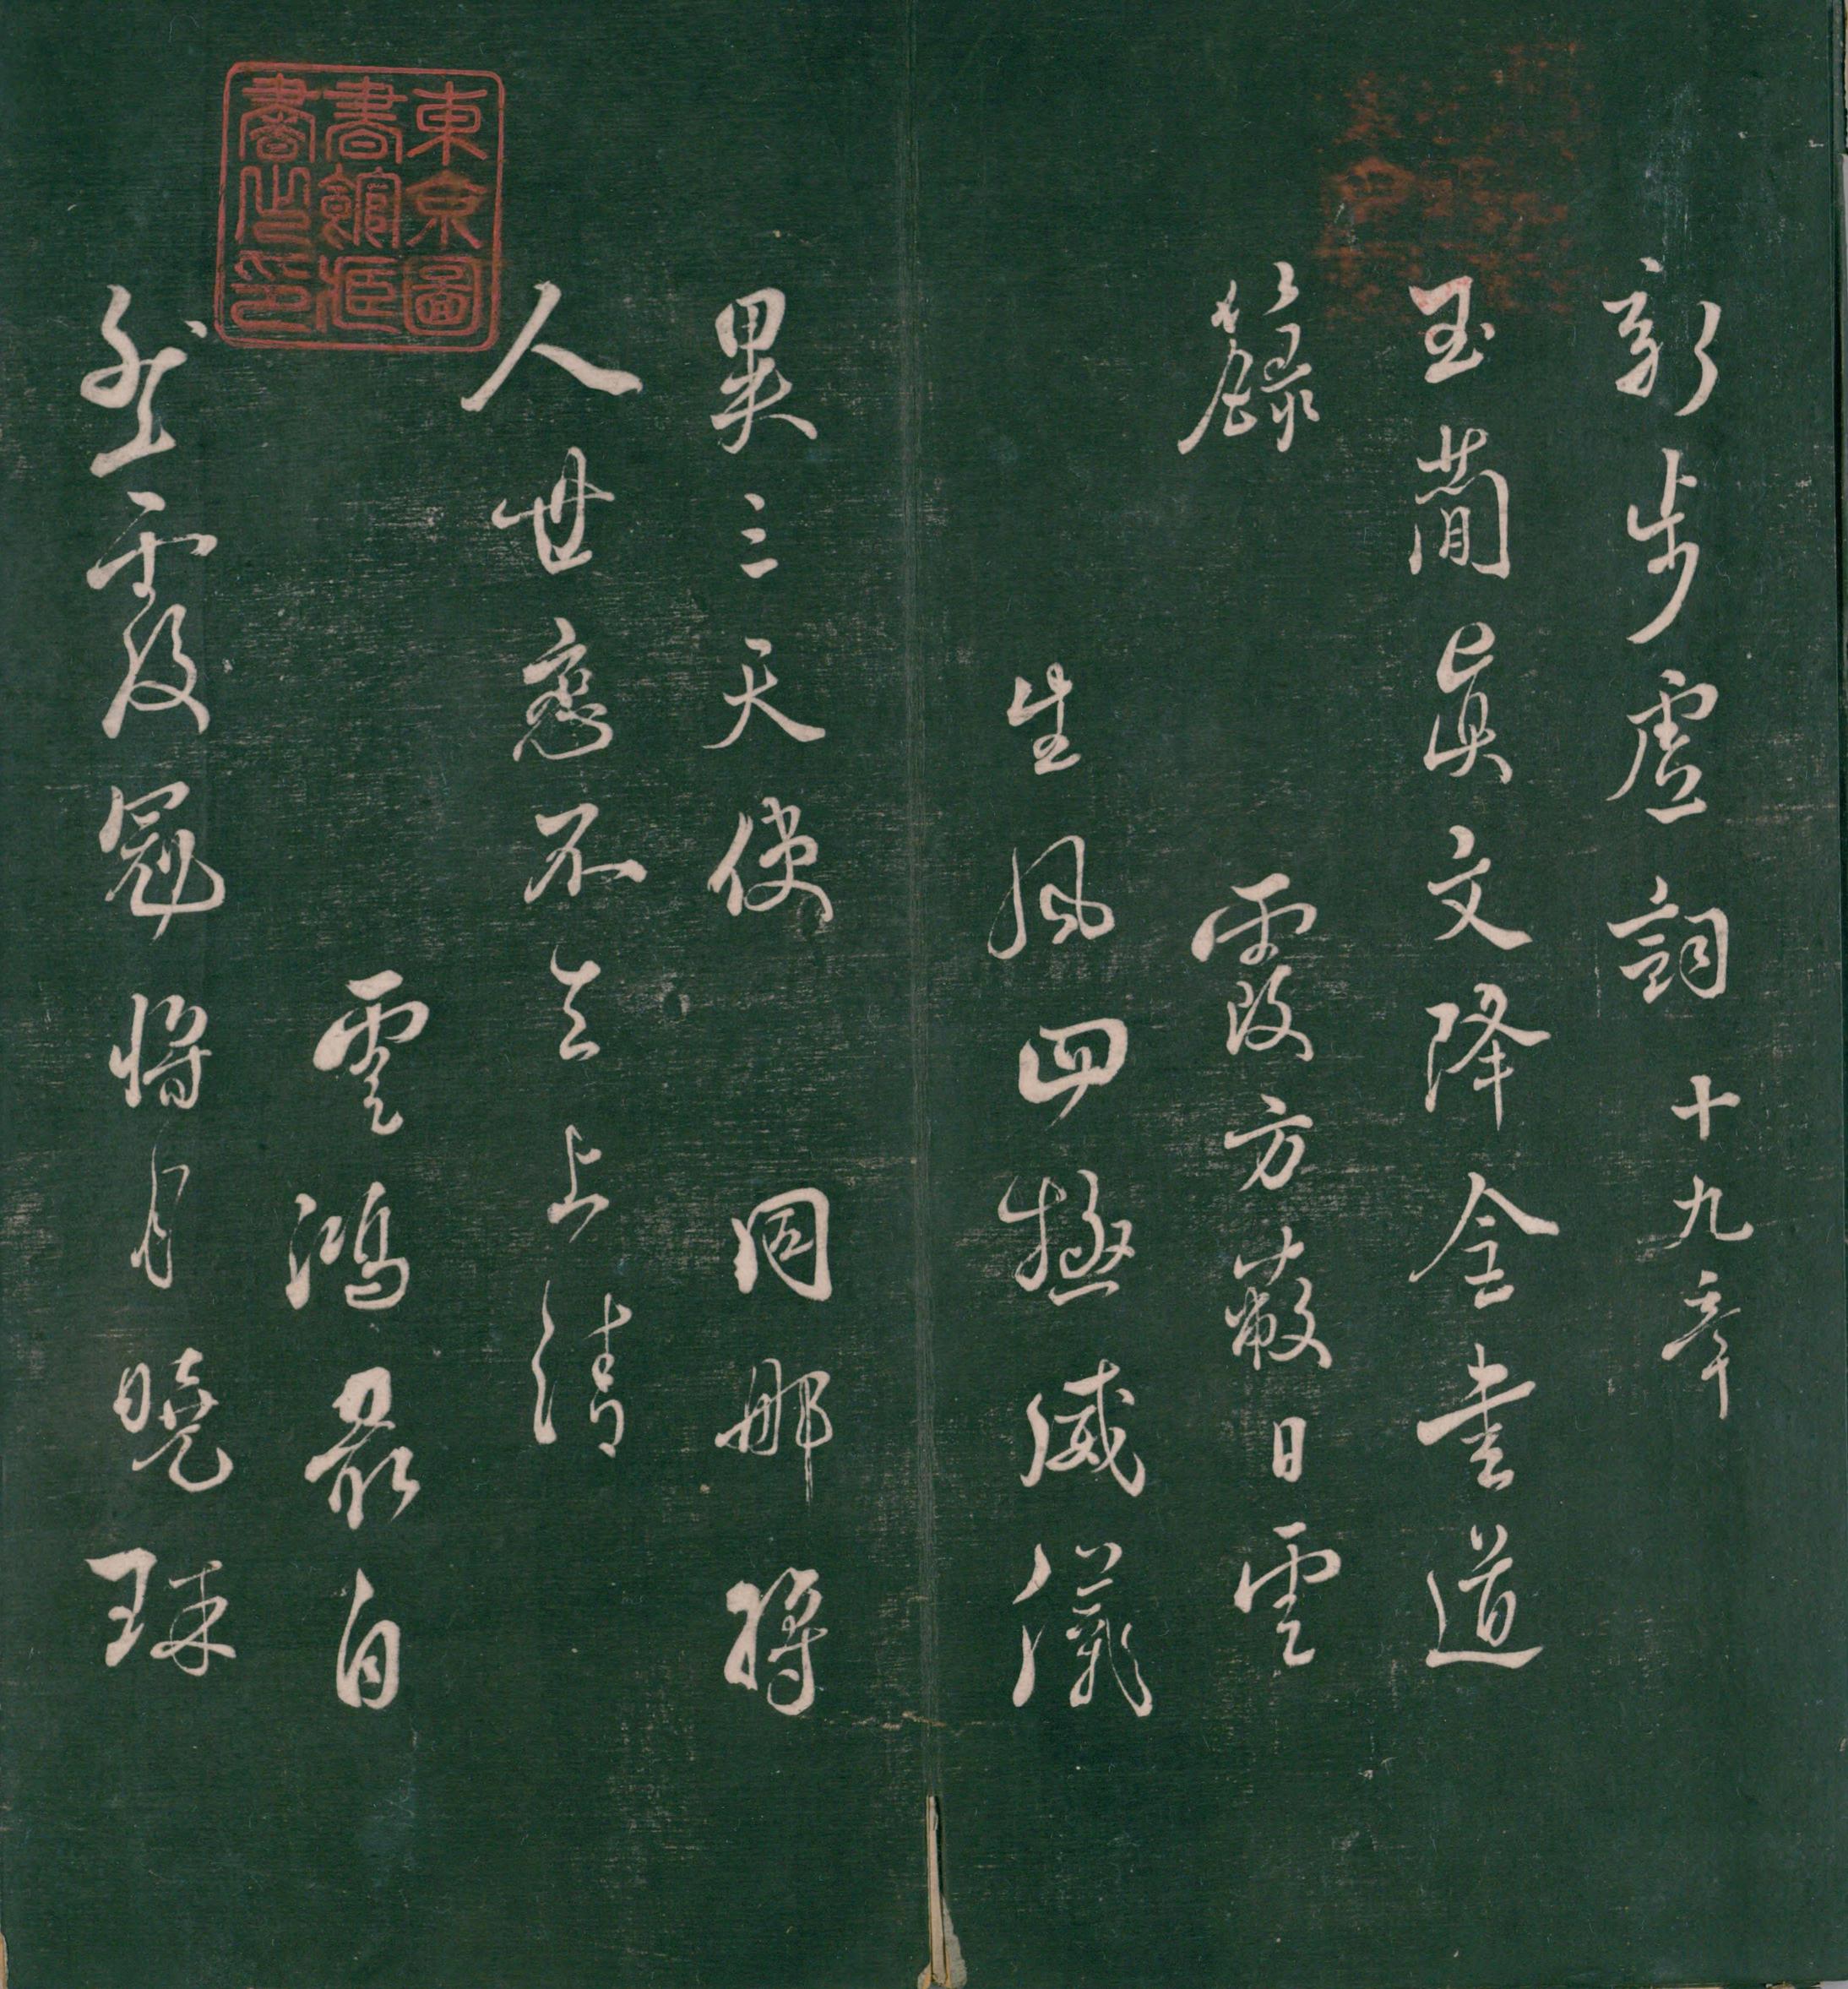 新步虛詞十九章
玉蕳真文降金書道
籙 霞方蔽日雲
生風四極威儀
異三天使 同那將
人世戀不去上清
雲鴻最自
然霞冠將月曉珠
東京圖
書館藏
書之印